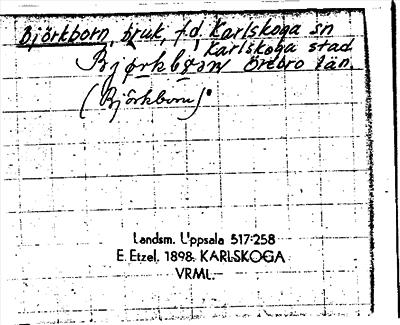 Björkborn, bruk f.d. Karlskoga sn
Karlskoga stad
Örebro län.
(Björkborn)
Landsm. Uppsala 517:258
E. Etzel, 1898. KARLSKOGA
VRML.